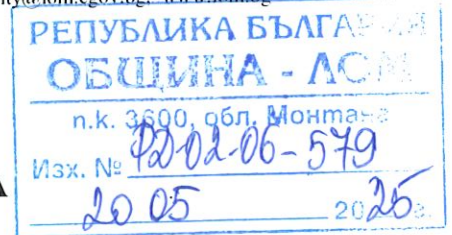 РЕПУБЛИКА БЪЛГАРИЯ
ОБЩИНА - ЛОМ
п.к. 3600, обл. Монтана
Изх. № РД-02-06-579
А
20 05 2025г.